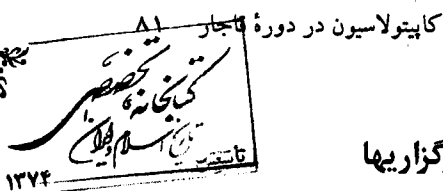 کاپیتولاسیون در دورهٔ قاجار ۸۱
کتابخانه تخصصی
تاریخ اسلام و ایران
تأسیس
۱۳۷۴
گزاریها